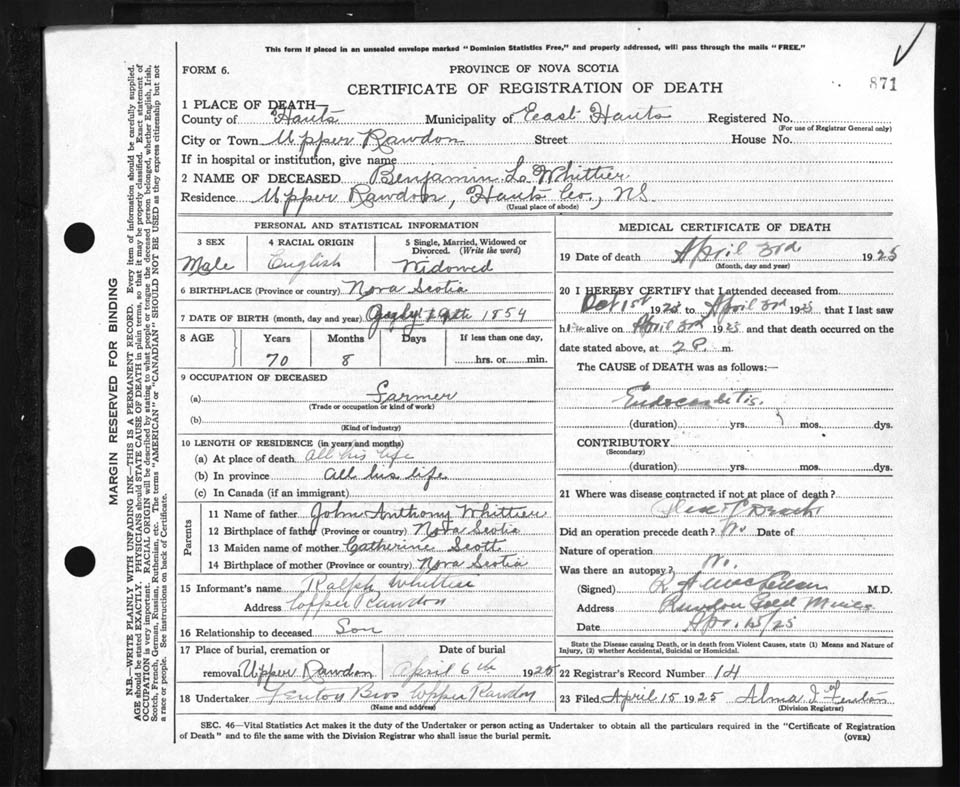 This form if placed in an unsealed envelope marked "Dominion Statistics Free," and properly addressed, will pass through the mails "FREE."
FORM 6.
PROVINCE OF NOVA SCOTIA
CERTIFICATE OF REGISTRATION OF DEATH
871
1 PLACE OF DEATH—
County of Hants Municipality of East Hants Registered No.
(For use of Registrar General only)
City or Town Upper Rawdon Street House No.
If in hospital or institution, give name
2 NAME OF DECEASED Benjamin L. Whittier
Residence Upper Rawdon, Hants Co., N.S.
(Usual place of abode)
PERSONAL AND STATISTICAL INFORMATION
3 SEX 4 RACIAL ORIGIN 5 Single, Married, Widowed or Divorced. (Write the word)
Male English Widowed
6 BIRTHPLACE (Province or country) Nova Scotia
7 DATE OF BIRTH (month, day and year) 1854
8 AGE Years Months Days If less than one day,
70 8 hrs. or min.
9 OCCUPATION OF DECEASED
(a) Farmer
(Trade or occupation or kind of work)
(b)
(Kind of industry)
10 LENGTH OF RESIDENCE (in years and months)
(a) At place of death All his life
(b) In province All his life
(c) In Canada (if an immigrant)
Parents
11 Name of father John Anthony Whittier
12 Birthplace of father (Province or country) Nova Scotia
13 Maiden name of mother Catherine Scott
14 Birthplace of mother (Province or country) Nova Scotia
15 Informant's name Ralph Whittier
Address Upper Rawdon
16 Relationship to deceased Son
17 Place of burial, cremation or removal Upper Rawdon Date of burial April 6th 1925
18 Undertaker Fenton Bros Upper Rawdon
(Name and address)
MEDICAL CERTIFICATE OF DEATH
19 Date of death April 3rd 1925
(Month, day and year)
20 I HEREBY CERTIFY that I attended deceased from
Oct 1st 1923 to April 3rd 1925 that I last saw
him alive on April 3rd 1925 and that death occurred on the
date stated above, at 2 P. m.
The CAUSE of DEATH was as follows:—
Endocarditis.
(duration) yrs. mos. dys.
CONTRIBUTORY.
(Secondary)
(duration) yrs. mos. dys.
21 Where was disease contracted if not at place of death?
Did an operation precede death? No Date of
Nature of operation
Was there an autopsy? No.
(Signed) M.D.
Address Rawdon Gold Mines
Date Apr. 15/25
State the Disease causing Death, or in death from Violent Causes, state (1) Means and Nature of Injury, (2) whether Accidental, Suicidal or Homicidal.
22 Registrar's Record Number 14
23 Filed April 15 1925 Alma J. Fenton
(Division Registrar)
SEC. 46—Vital Statistics Act makes it the duty of the Undertaker or person acting as Undertaker to obtain all the particulars required in the "Certificate of Registration
of Death" and to file the same with the Division Registrar who shall issue the burial permit.
(OVER)
MARGIN RESERVED FOR BINDING
N.B.—WRITE PLAINLY WITH UNFADING INK—THIS IS A PERMANENT RECORD. Every item of information should be carefully supplied.
AGE should be stated EXACTLY. PHYSICIANS should STATE CAUSE OF DEATH in plain terms, so that it may be properly classified. Exact statement of
OCCUPATION is very important. RACIAL ORIGIN will be described by stating to what people or tongue the deceased person belonged, whether English, Irish,
Scotch, French, German, Russian, Ruthenian, etc. The terms "AMERICAN" or "CANADIAN" SHOULD NOT BE USED as they express citizenship but not
a race or people. See instructions on back of Certificate.